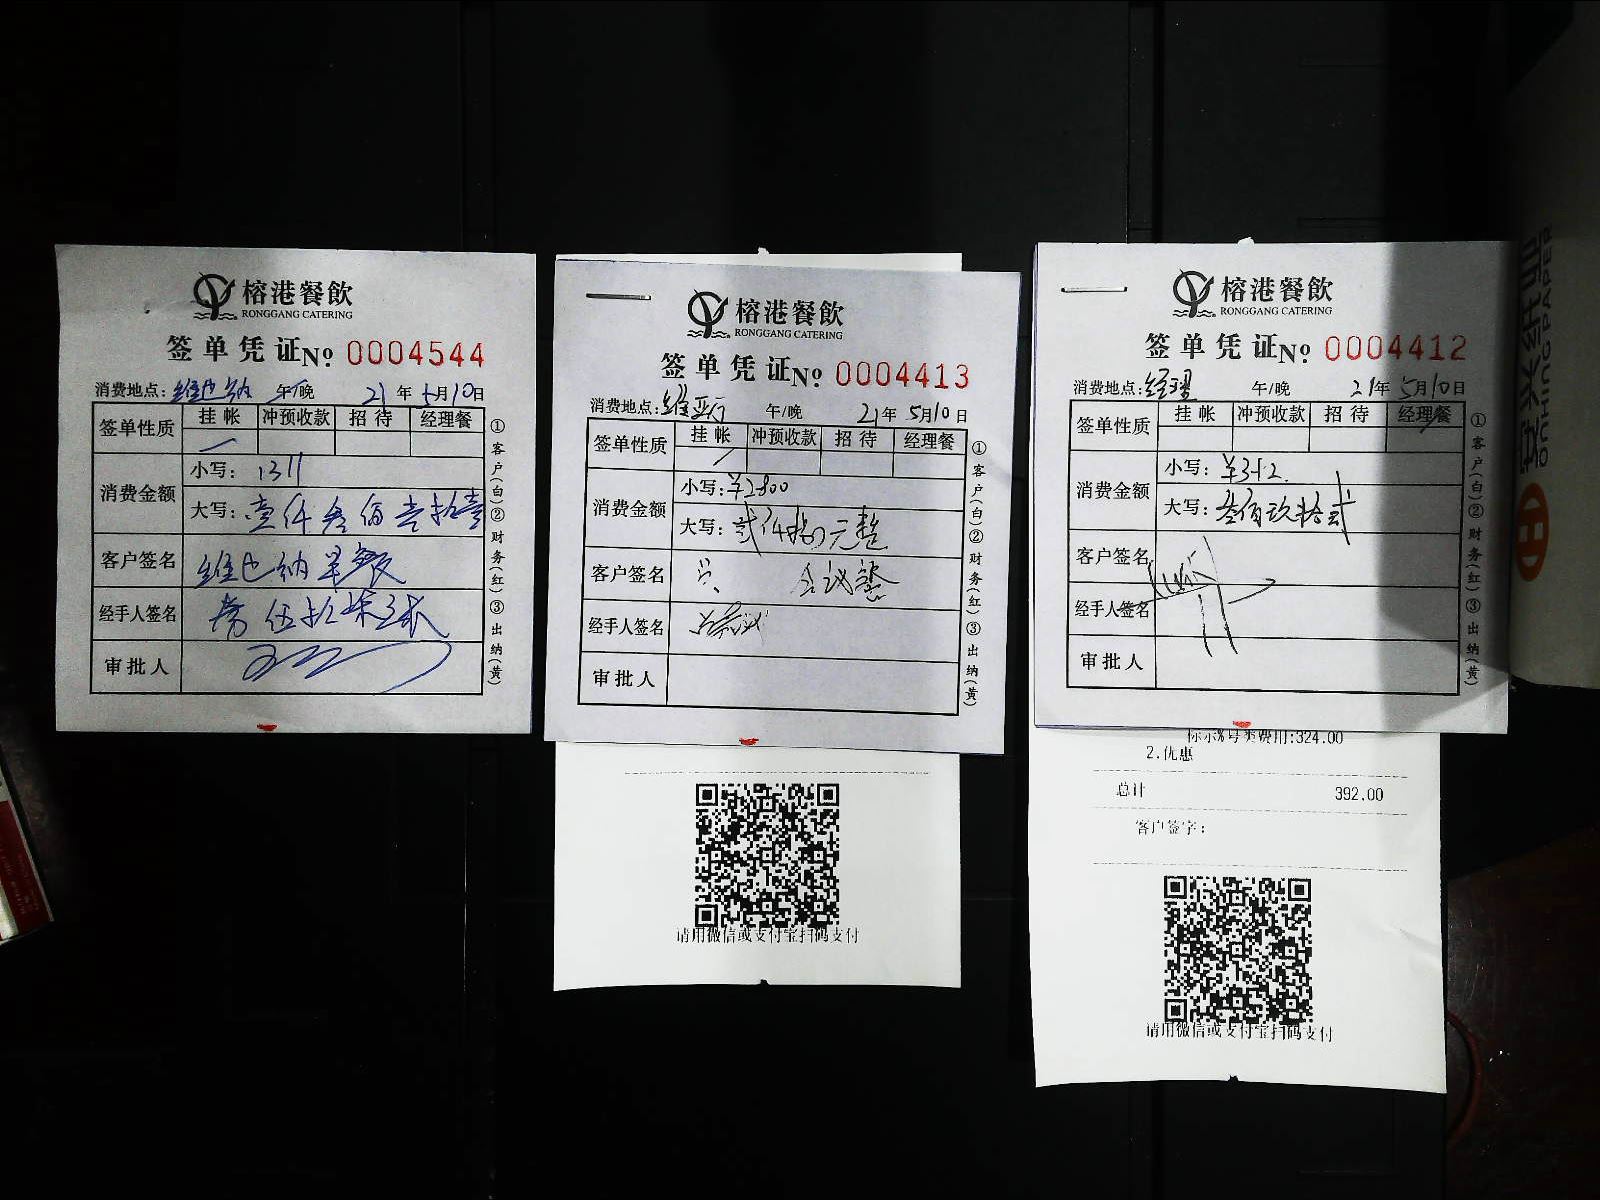 榕港餐飲
RONGGANG CATERING
签单凭证No 0004544
消费地点:维也纳 午/晚 21年5月10日
签单性质 挂帐 冲预收款 招待 经理餐
消费金额 小写: 1311
大写: 壹仟叁佰壹拾壹
客户签名 维也纳早餐
经手人签名
审批人
①客户(白)②财务(红)③出纳(黄)
榕港餐飲
RONGGANG CATERING
签单凭证No 0004413
消费地点: 午/晚 21年5月10日
签单性质 挂帐 冲预收款 招待 经理餐
消费金额 小写:¥2800
大写: 元整
客户签名
经手人签名
审批人
①客户(白)②财务(红)③出纳(黄)
请用微信或支付宝扫码支付
榕港餐飲
RONGGANG CATERING
签单凭证No 0004412
消费地点:经理 午/晚 21年5月10日
签单性质 挂帐 冲预收款 招待 经理餐
消费金额 小写:
大写:叁佰玖拾贰
客户签名
经手人签名
审批人
①客户(白)②财务(红)③出纳(黄)
费用:324.00
2.优惠
总计 392.00
客户签字:
请用微信或支付宝扫码支付
QINHING PAPER